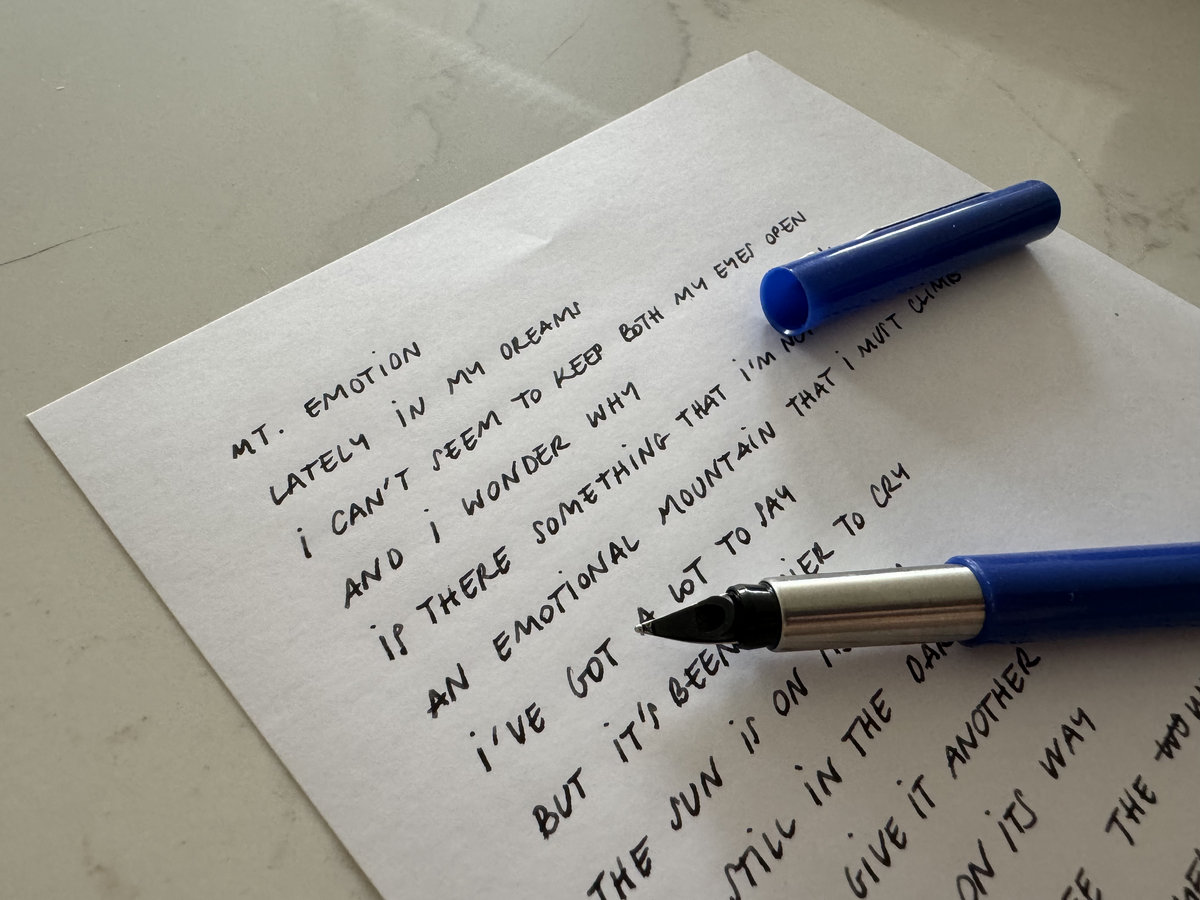 MT. EMOTION
LATELY iN MY DREAMS
i CAN'T SEEM TO KEEP BOTH MY EYES OPEN
AND i WONDER WHY
iS THERE SOMETHING THAT i'M NOT
AN EMOTIONAL MOUNTAIN THAT i MUST CLIMB
i'VE GOT A LOT TO SAY
BUT iT'S BEEN TO CRY
THE SUN iS ON
STiLL iN THE
GiVE iT ANOTHER
ON iTS WAY
THE